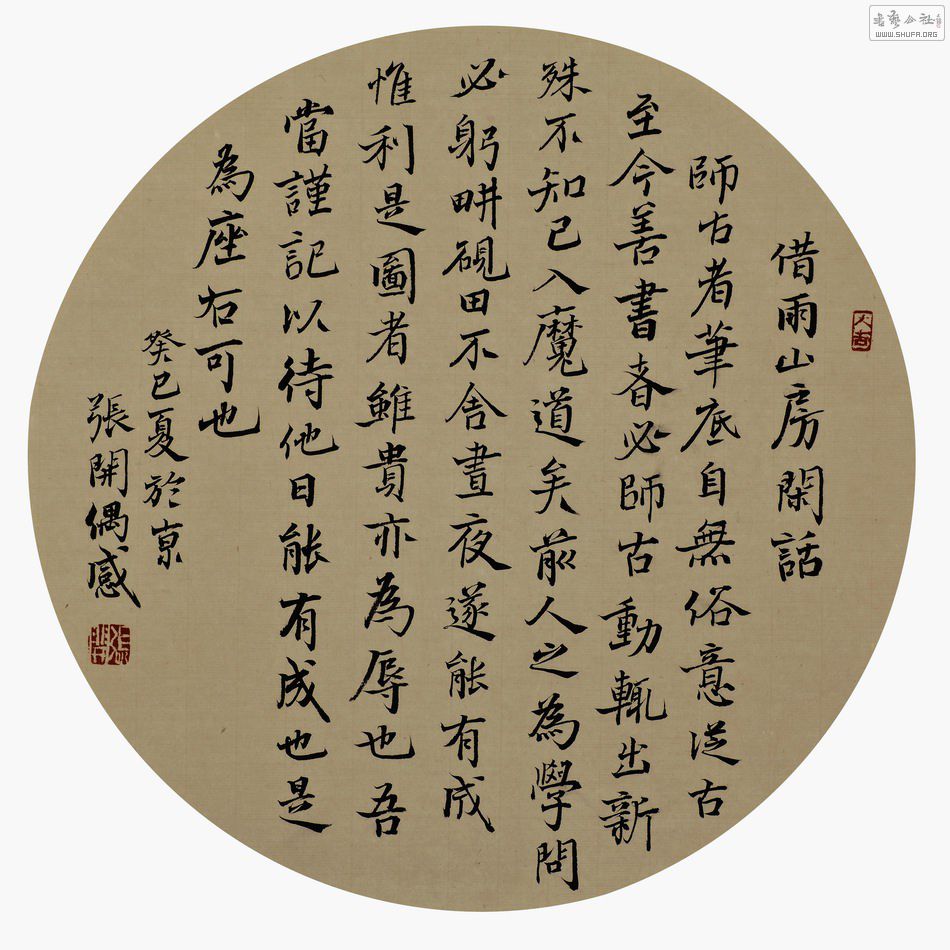 借雨山房閑話
師古者筆底自無俗意從古
至今善書者必師古動輒出新
殊不知已入魔道矣前人之為學問
必躬畊硯田不舍晝夜遂能有成
惟利是圖者雖貴亦為辱也吾
當謹記以待他日能有成也是
為座右可也
癸巳夏於京
張開偶感
WWW.SHUFA.ORG